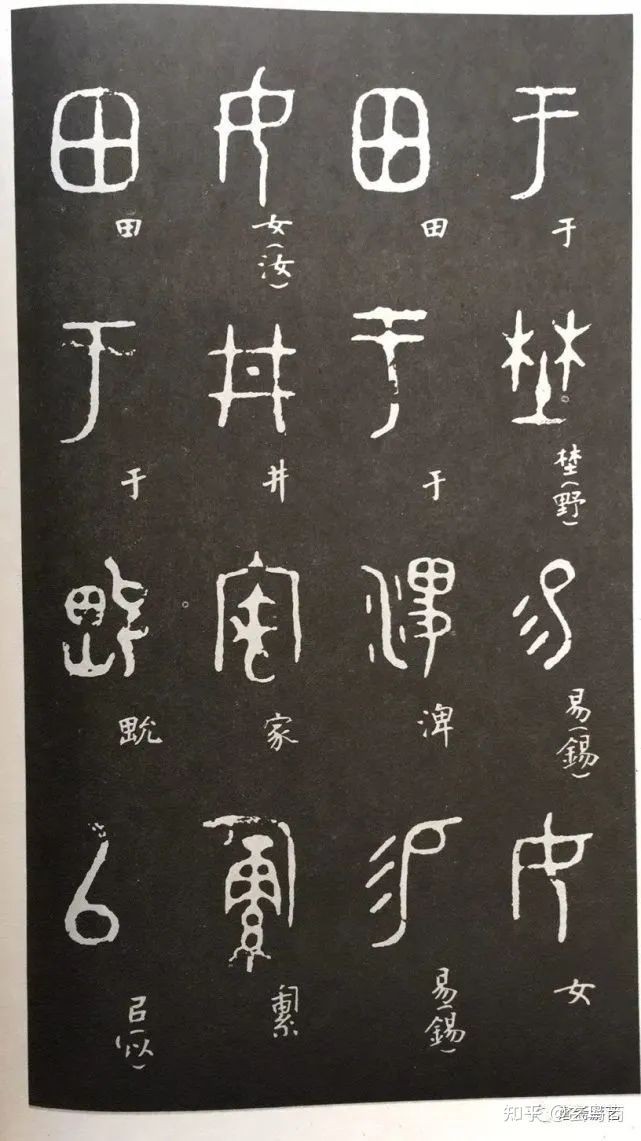 于埜(野)易(錫)女
田于渒易(錫)
女(汝)井家
田于㠯(以)
知乎